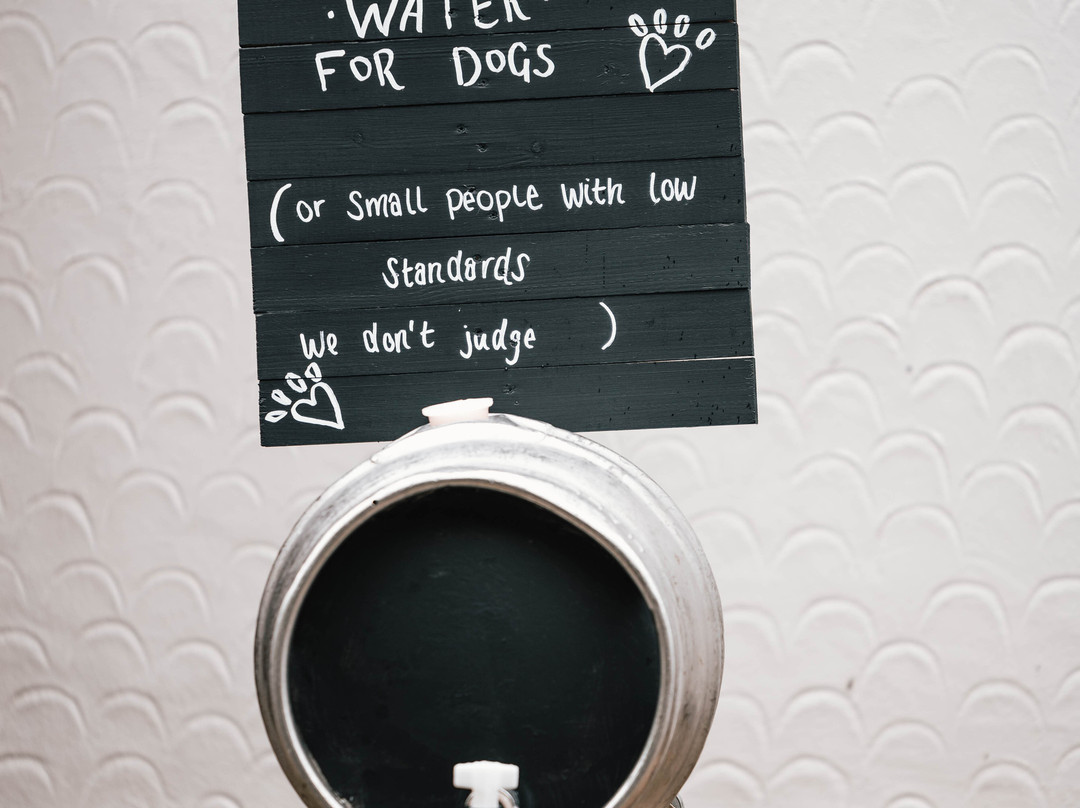 ·WATER·
FOR DOGS
(or small people with low
standards
We don't judge )